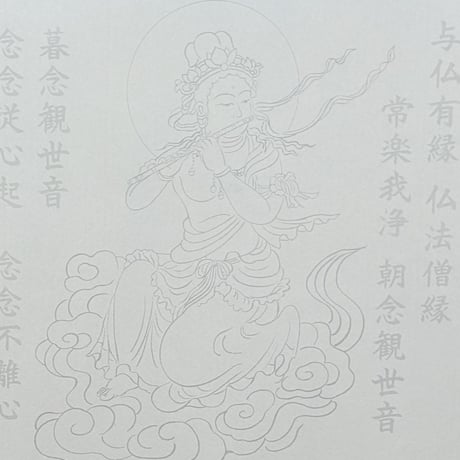 与仏有縁 仏法僧縁
常楽我浄 朝念観世音
暮念観世音
念念従心起 念念不離心